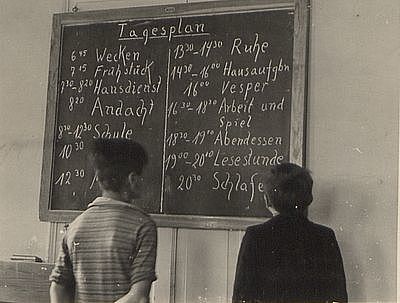 Tagesplan
6 45 Wecken
7 15 Frühstück
7 30 - 8 20 Hausdienst
8 20 Andacht
8 30 - 12 30 Schule
10 30
12 30
13 30 - 14 30 Ruhe
14 30 - 16 00 Hausaufgbn
16 00 Vesper
16 30 - 18 30 Arbeit und
Spiel
18 30 - 19 00 Abendessen
19 00 - 20 00 Lesestunde
20 30 Schlafe